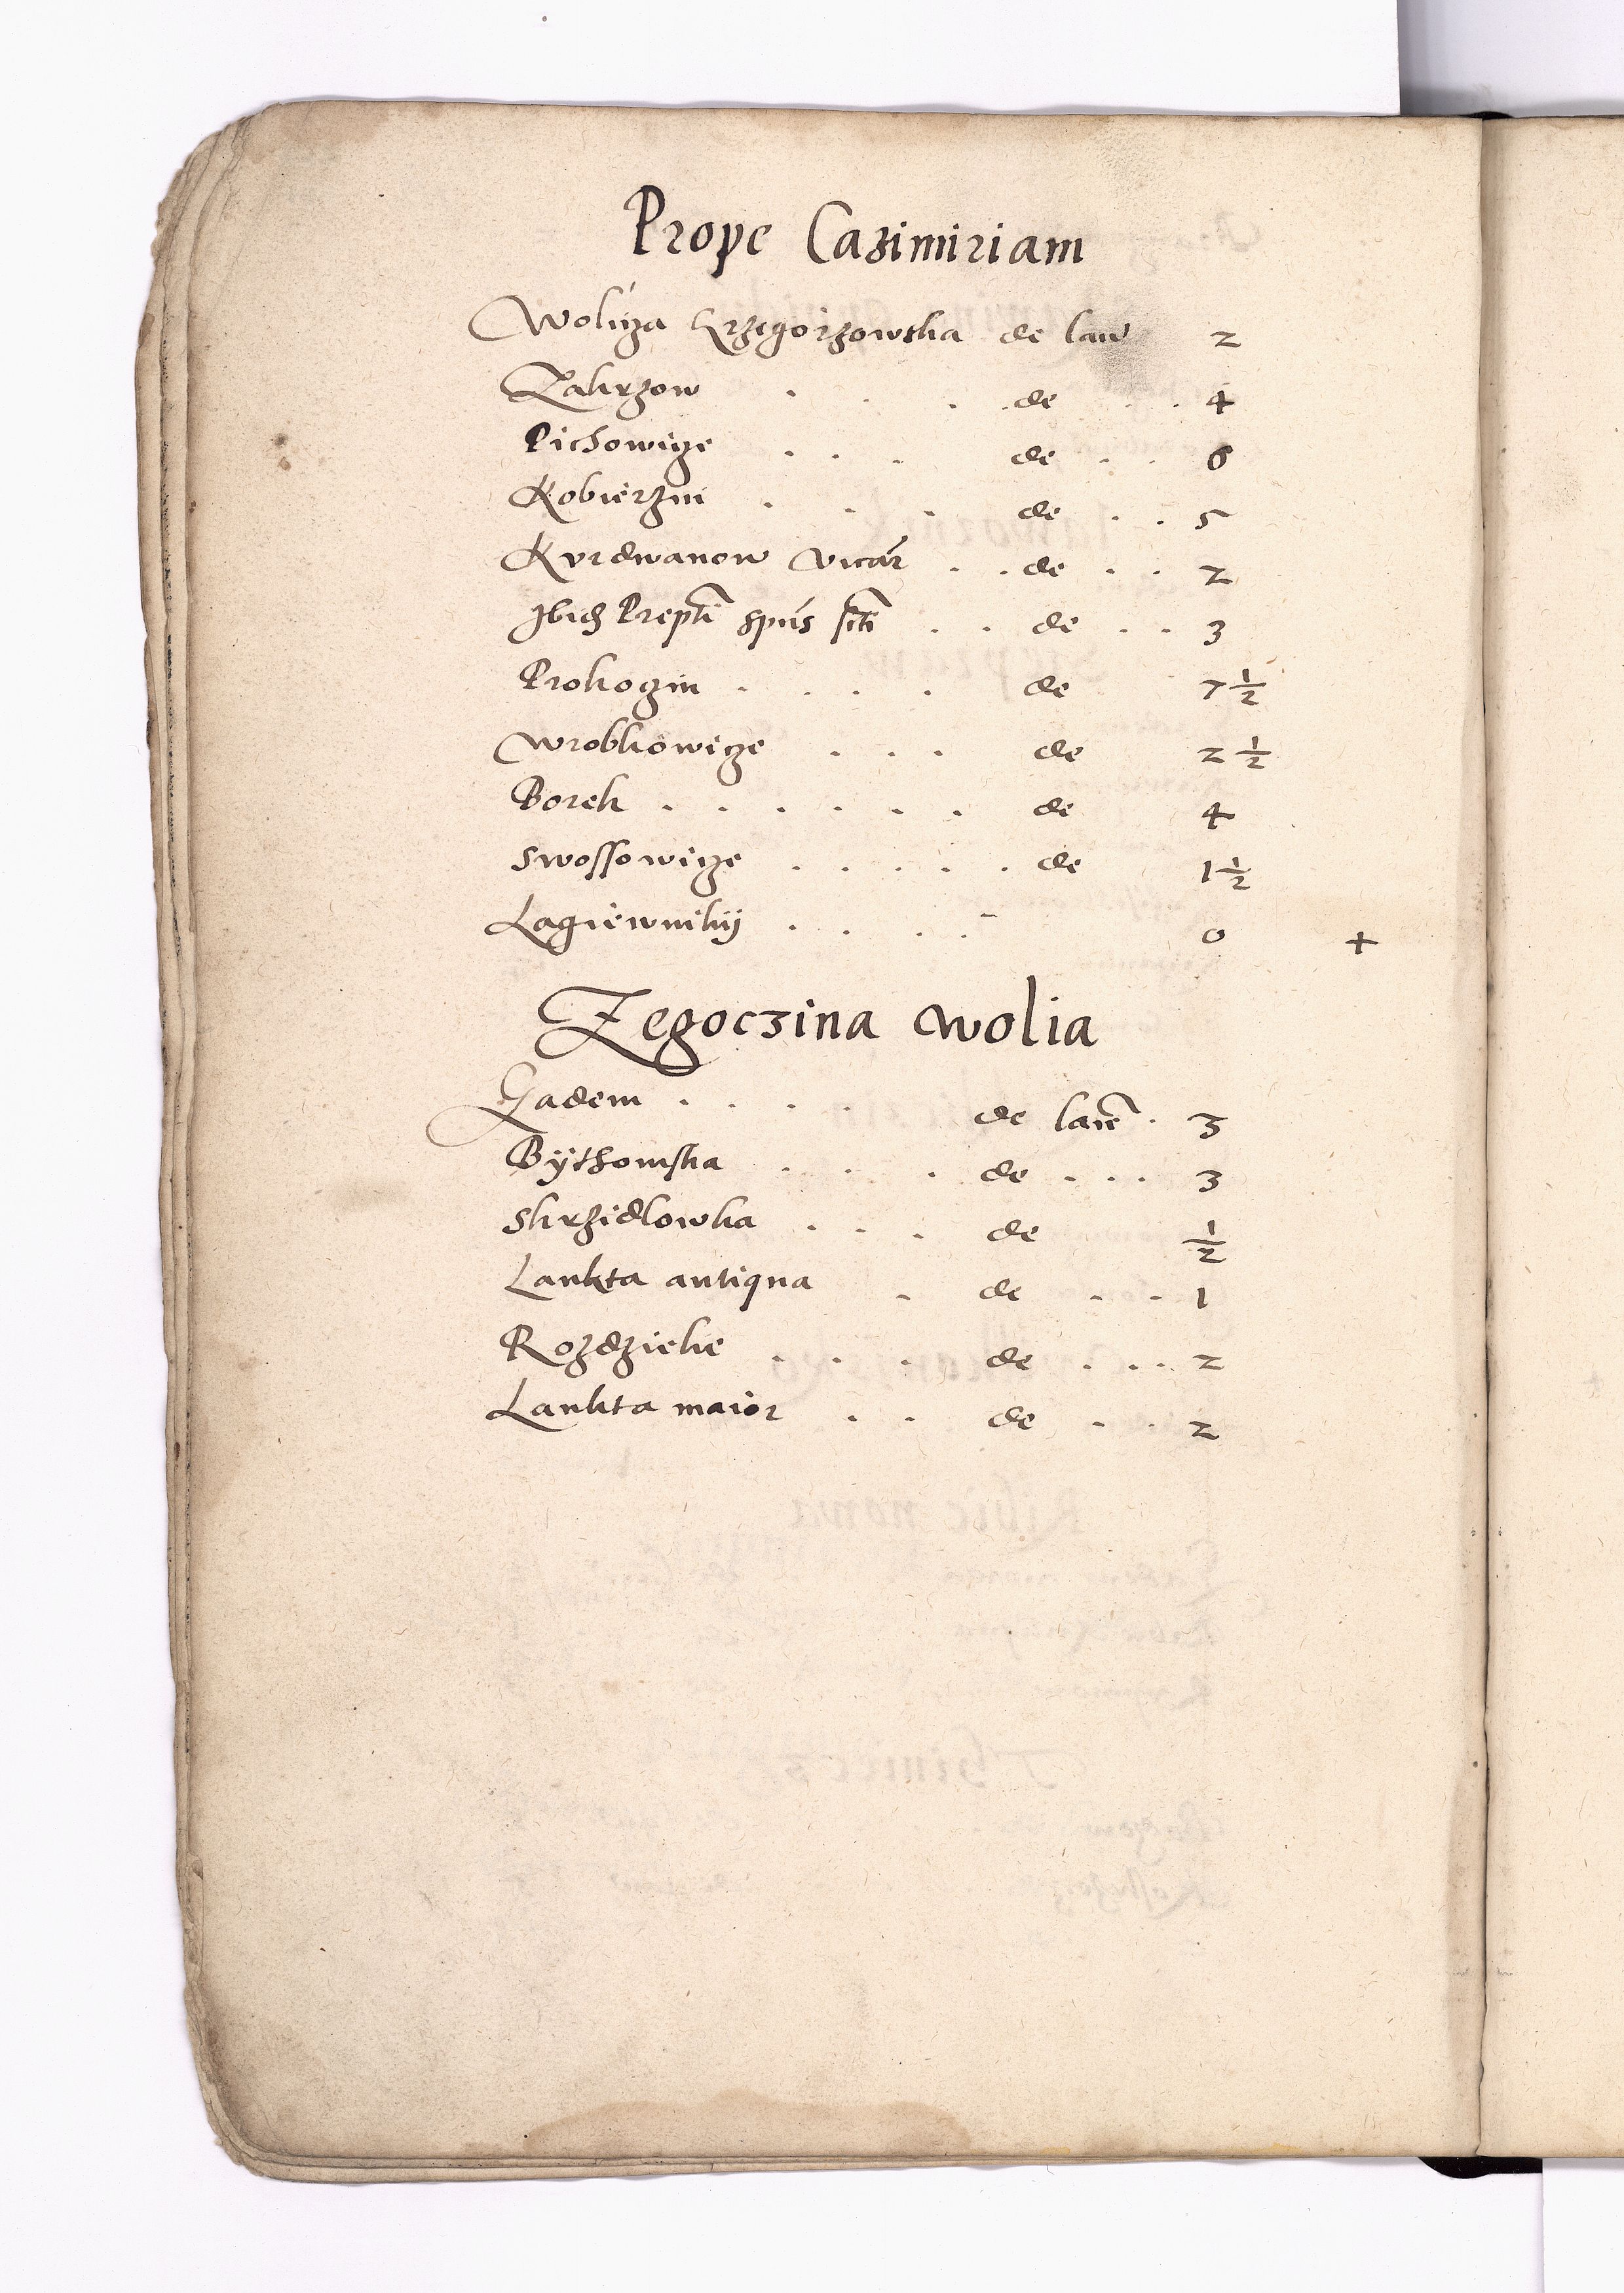 Prope Cazimiriam
Wolicza Grzegorzowska de lan 2
Zakrzow . . . de . . 4
Pichowicze . . . de . . 6
Kobierzin . . . de . . 5
Kvrdwanow vicar . . de . . 2
Ibid Prepti spus scti . . de . . 3
Prokoczin . . . . de 7 1/2
Wrobkowicze . . . de 2 1/2
Borek . . . . . . de 4
Swossowicze . . . . . de 1 1/2
Lagiewnikij . . . . 0 +
Zegoczina Wolia
Eadem . . . . de lane . 3
Bÿthomska . . . de . . . 3
Skrzidlowka . . . de 1/2
Lankta antiqua . de . . 1
Rozdziele . . . de . . . 2
Lankta maior . . de . . 2